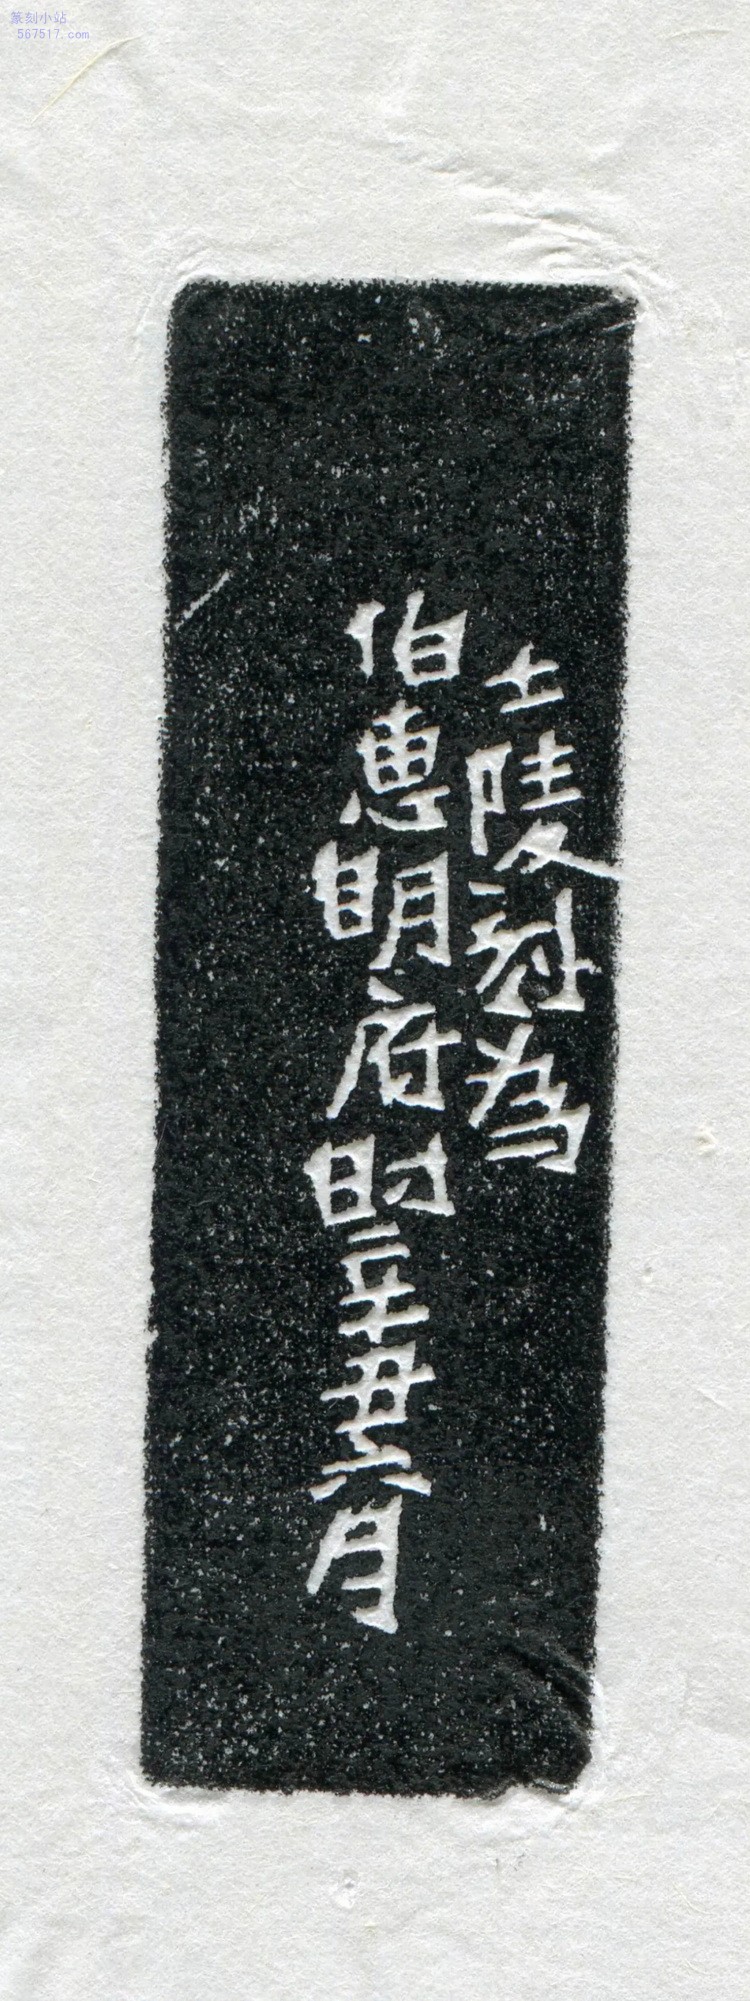 篆刻小站
567517.com
士陵 為
伯惠明府時辛丑六月